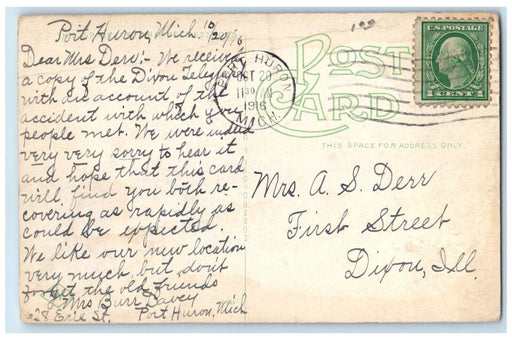 Port Huron, Mich 10/20/16
Dear Mrs Derr:- We received
a copy of the Dixon Telegraph
with an account of the
accident with which you
people met. We were indeed
very very sorry to hear it
and hope that this card
will find you both re-
covering as rapidly as
could be expected.
We like our new location
very much, but don't
forget the old friends
Mrs Burr Davey
628 Erie St. Port Huron, Mich
POST
CARD
THIS SPACE FOR ADDRESS ONLY.
PORT HURON
OCT 20
1130
1916
MICH.
U.S. POSTAGE
1 CENT 1
Mrs. A. S. Derr
First Street
Dixon, Ill.